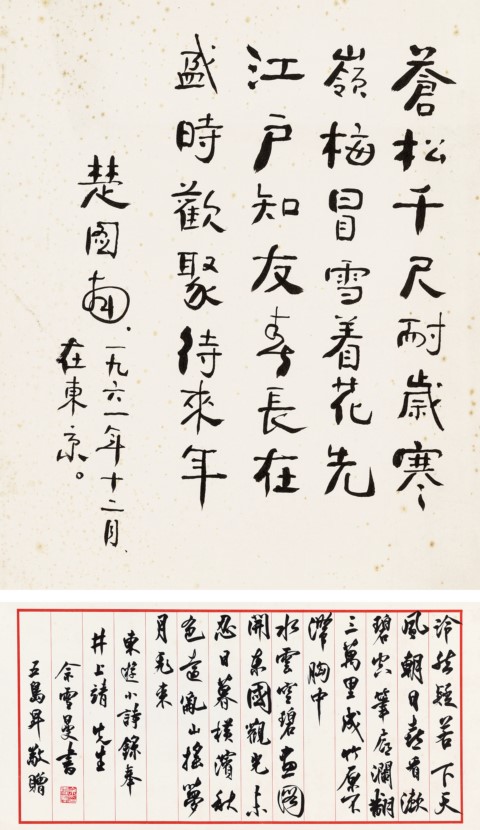 蒼松千尺耐歲寒
嶺梅冒雪着花先
江户知友長在
盛時歡聚待來年
楚图南、一九六一年十二月、
在東京。
泠然疑若下天
風朝日喜看澈
碧空筆底瀾翻
三萬里成竹原不
胸中
水雲空碧画図
開東國觀光未
忍日暮橫濱秋
色遠亂山搖夢
月來
東遊小詩錄奉
井上靖先生
佘雪曼書
五島昇敬贈